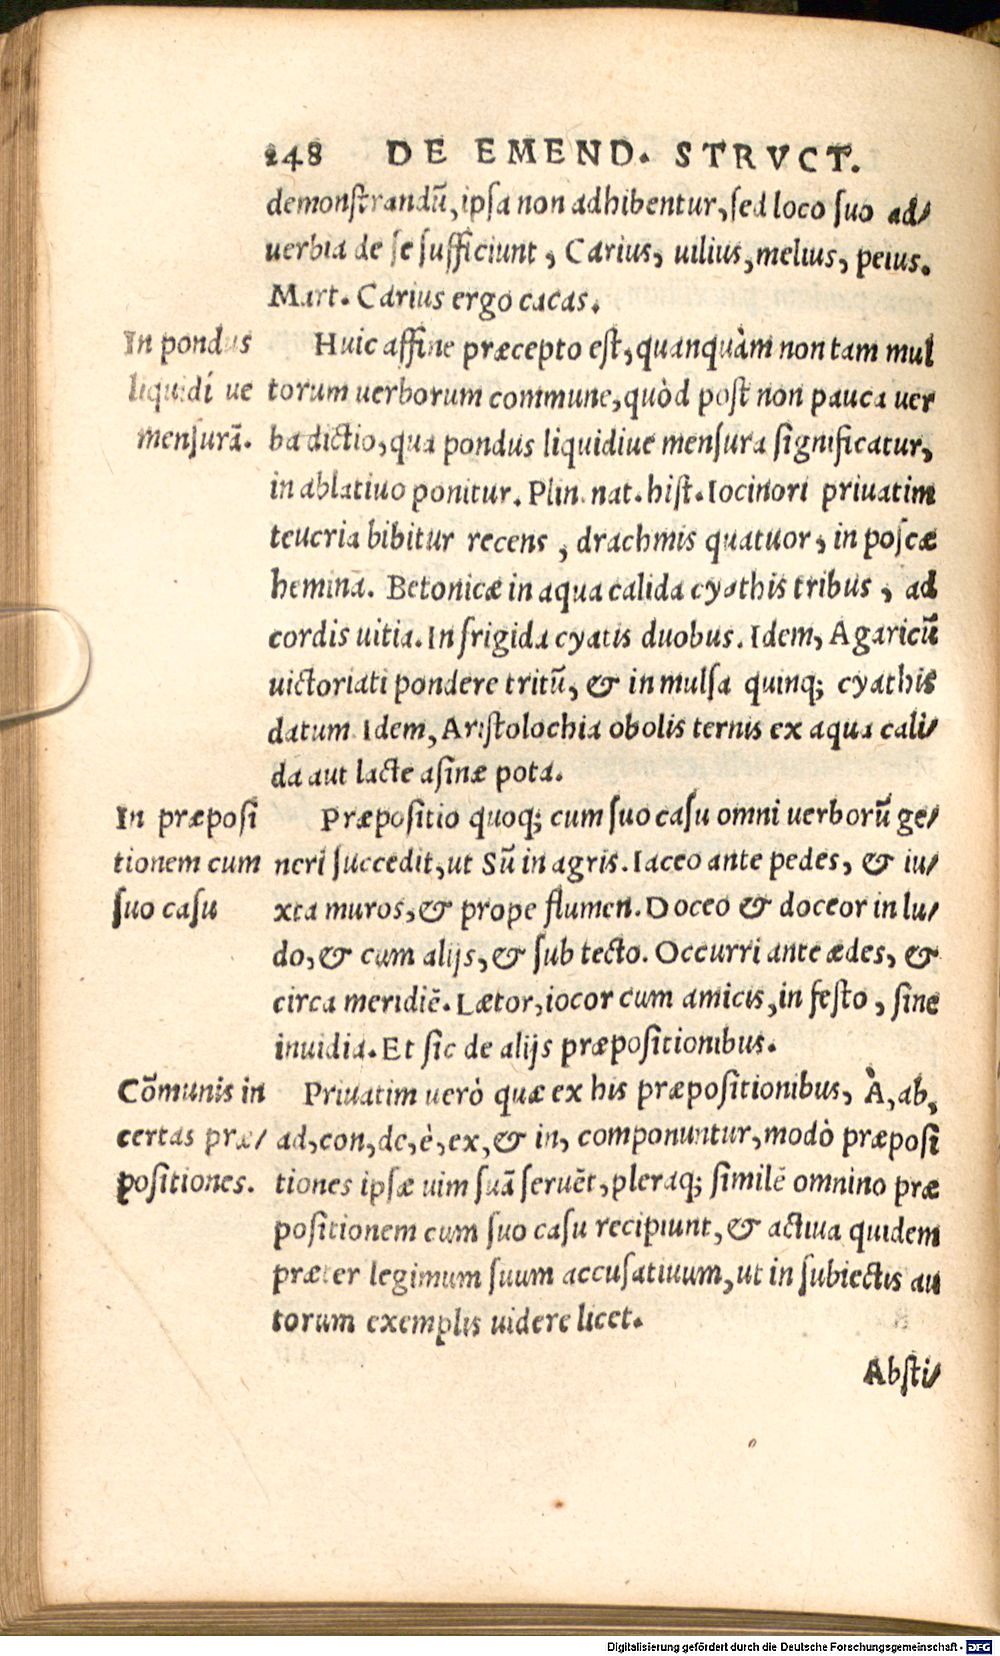 248 DE EMEND. STRVCT.
demonſtrandũ, ipſa non adhibentur, ſed loco ſuo ad/
uerbia de ſe ſufficiunt, Carius, uilius, melius, peius.
Mart. Carius ergo cacas.
In pondus
liquidí ue
menſurã.
Huic affine præcepto eſt, quanquàm non tam mul
torum uerborum commune, quòd poſt non pauca uer
ba dictio, qua pondus liquidiue menſura ſignificatur,
in ablatiuo ponitur. Plin. nat. hiſt. Iocinori priuatim
teucria bibitur recens, drachmis quatuor, in poſcæ
hemina. Betonicæ in aqua calida cyathis tribus, ad
cordis uitia. In frigida cyatis duobus. Idem, Agaricũ
uictoriati pondere tritũ, & in mulſa quinq; cyathis
datum. Idem, Ariſtolochia obolis ternis ex aqua cali/
da aut lacte aſinæ pota.
In præpoſi
tionem cum
ſuo caſu
Præpoſitio quoq; cum ſuo caſu omni uerborũ ge/
neri ſuccedit, ut Sũ in agris. Iaceo ante pedes, & iu/
xta muros, & prope flumen. Doceo & doceor in lu/
do, & cum alijs, & ſub tecto. Occurri ante ædes, &
circa meridiẽ. Lætor, iocor cum amicis, in feſto, ſine
inuidia. Et ſic de alijs præpoſitionibus.
Cõmunis in
certas præ/
poſitiones.
Priuatim uerò quæ ex his præpoſitionibus, À, ab,
ad, con, de, è, ex, & in, componuntur, modò præpoſi
tiones ipſæ uim ſuã ſeruẽt, pleraq; ſimilẽ omnino præ
poſitionem cum ſuo caſu recipiunt, & actiua quidem
præter legimum ſuum accuſatiuum, ut in ſubiectis au
torum exemplis uidere licet.
Abſti/
Digitalisierung gefördert durch die Deutsche Forschungsgemeinschaft - DFG